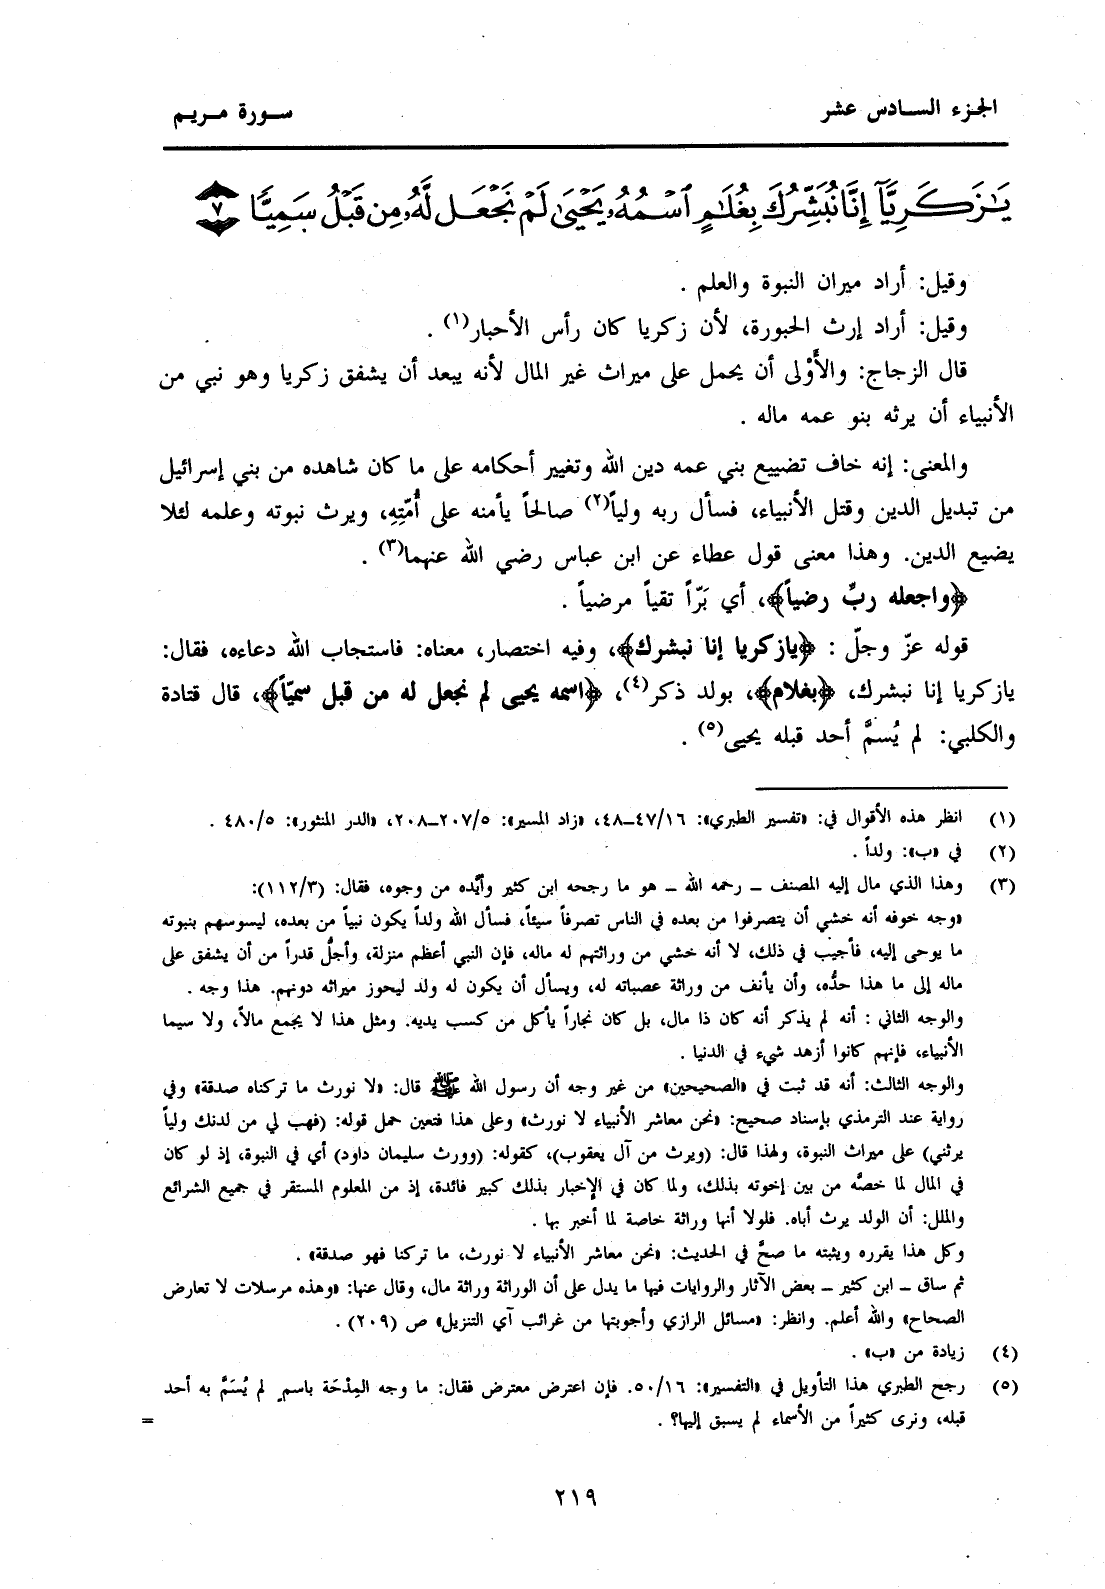 الجزء السادس عشر
سورة مريم
يَٰزَكَرِيَّآ إِنَّا نُبَشِّرُكَ بِغُلَٰمٍ ٱسْمُهُۥ يَحْيَىٰ لَمْ نَجْعَل لَّهُۥ مِن قَبْلُ سَمِيًّا ٧
وقيل: أراد ميران النبوة والعلم .
وقيل: أراد إرث الحبورة، لأن زكريا كان رأس الأحبار(١) .
قال الزجاج: والأَوْلى أن يحمل على ميراث غير المال لأنه يبعد أن يشفق زكريا وهو نبي من
الأنبياء أن يرثه بنو عمه ماله .
والمعنى: إنه خاف تضييع بني عمه دين الله وتغيير أحكامه على ما كان شاهده من بني إسرائيل
من تبديل الدين وقتل الأنبياء، فسأل ربه ولياً(٢) صالحاً يأمنه على أُمّتِهِ، ويرث نبوته وعلمه لئلا
يضيع الدين. وهذا معنى قول عطاء عن ابن عباس رضي الله عنهما(٣) .
﴿واجعله ربِّ رضياً﴾، أي بَرّاً تقياً مرضياً .
قوله عزّ وجلّ : ﴿يازكريا إنا نبشرك﴾، وفيه اختصار، معناه: فاستجاب الله دعاءه، فقال:
يازكريا إنا نبشرك، ﴿بغلام﴾، بولد ذكر(٤)، ﴿اسمه يحيى لم نجعل له من قبل سميّاً﴾، قال قتادة
والكلبي: لم يُسمَّ أحد قبله يحيى(٥) .
(١) انظر هذه الأقوال في: «تفسير الطبري»: ٤٧/١٦ـ٤٨، «زاد المسير»: ٢٠٧/٥ـ٢٠٨، «الدر المنثور»: ٤٨٠/٥ .
(٢) في «ب»: ولداً .
(٣) وهذا الذي مال إليه المصنف ـ رحمه الله ـ هو ما رجحه ابن كثير وأيَّده من وجوه، فقال: (١١٢/٣):
«وجه خوفه أنه خشي أن يتصرفوا من بعده في الناس تصرفاً سيئاً، فسأل الله ولداً يكون نبياً من بعده، ليسوسهم بنبوته
ما يوحى إليه، فأجيب في ذلك، لا أنه خشي من وراثتهم له ماله، فإن النبي أعظم منزلة، وأجلُّ قدراً من أن يشفق على
ماله إلى ما هذا حدُّه، وأن يأنف من وراثة عصباته له، ويسأل أن يكون له ولد ليحوز ميراثه دونهم. هذا وجه .
والوجه الثاني : أنه لم يذكر أنه كان ذا مال، بل كان نجاراً يأكل من كسب يديه. ومثل هذا لا يجمع مالاً، ولا سيما
الأنبياء، فإنهم كانوا أزهد شيء في الدنيا .
والوجه الثالث: أنه قد ثبت في «الصحيحين» من غير وجه أن رسول الله ﷺ قال: «لا نورث ما تركناه صدقة» وفي
رواية عند الترمذي بإسناد صحيح: «نحن معاشر الأنبياء لا نورث» وعلى هذا فتعين حمل قوله: (فهب لي من لدنك ولياً
يرثني) على ميراث النبوة، ولهذا قال: (ويرث من آل يعقوب)، كقوله: (وورث سليمان داود) أي في النبوة، إذ لو كان
في المال لما خصَّه من بين إخوته بذلك، ولما كان في الإخبار بذلك كبير فائدة، إذ من المعلوم المستقر في جميع الشرائع
والملل: أن الولد يرث أباه. فلولا أنها وراثة خاصة لما أخبر بها .
وكل هذا يقرره ويثبته ما صحَّ في الحديث: «نحن معاشر الأنبياء لا نورث، ما تركنا فهو صدقة» .
ثم ساق ـ ابن كثير ـ بعض الآثار والروايات فيها ما يدل على أن الوراثة وراثة مال، وقال عنها: «وهذه مرسلات لا تعارض
الصحاح» والله أعلم. وانظر: «مسائل الرازي وأجوبتها من غرائب آي التنزيل» ص (٢٠٩) .
(٤) زيادة من «ب» .
(٥) رجح الطبري هذا التأويل في «التفسير»: ٥٠/١٦. فإن اعترض معترض فقال: ما وجه المِدْحَة باسم لم يُسَمَّ به أحد
قبله، ونرى كثيراً من الأسماء لم يسبق إليها؟ .
=
٢١٩